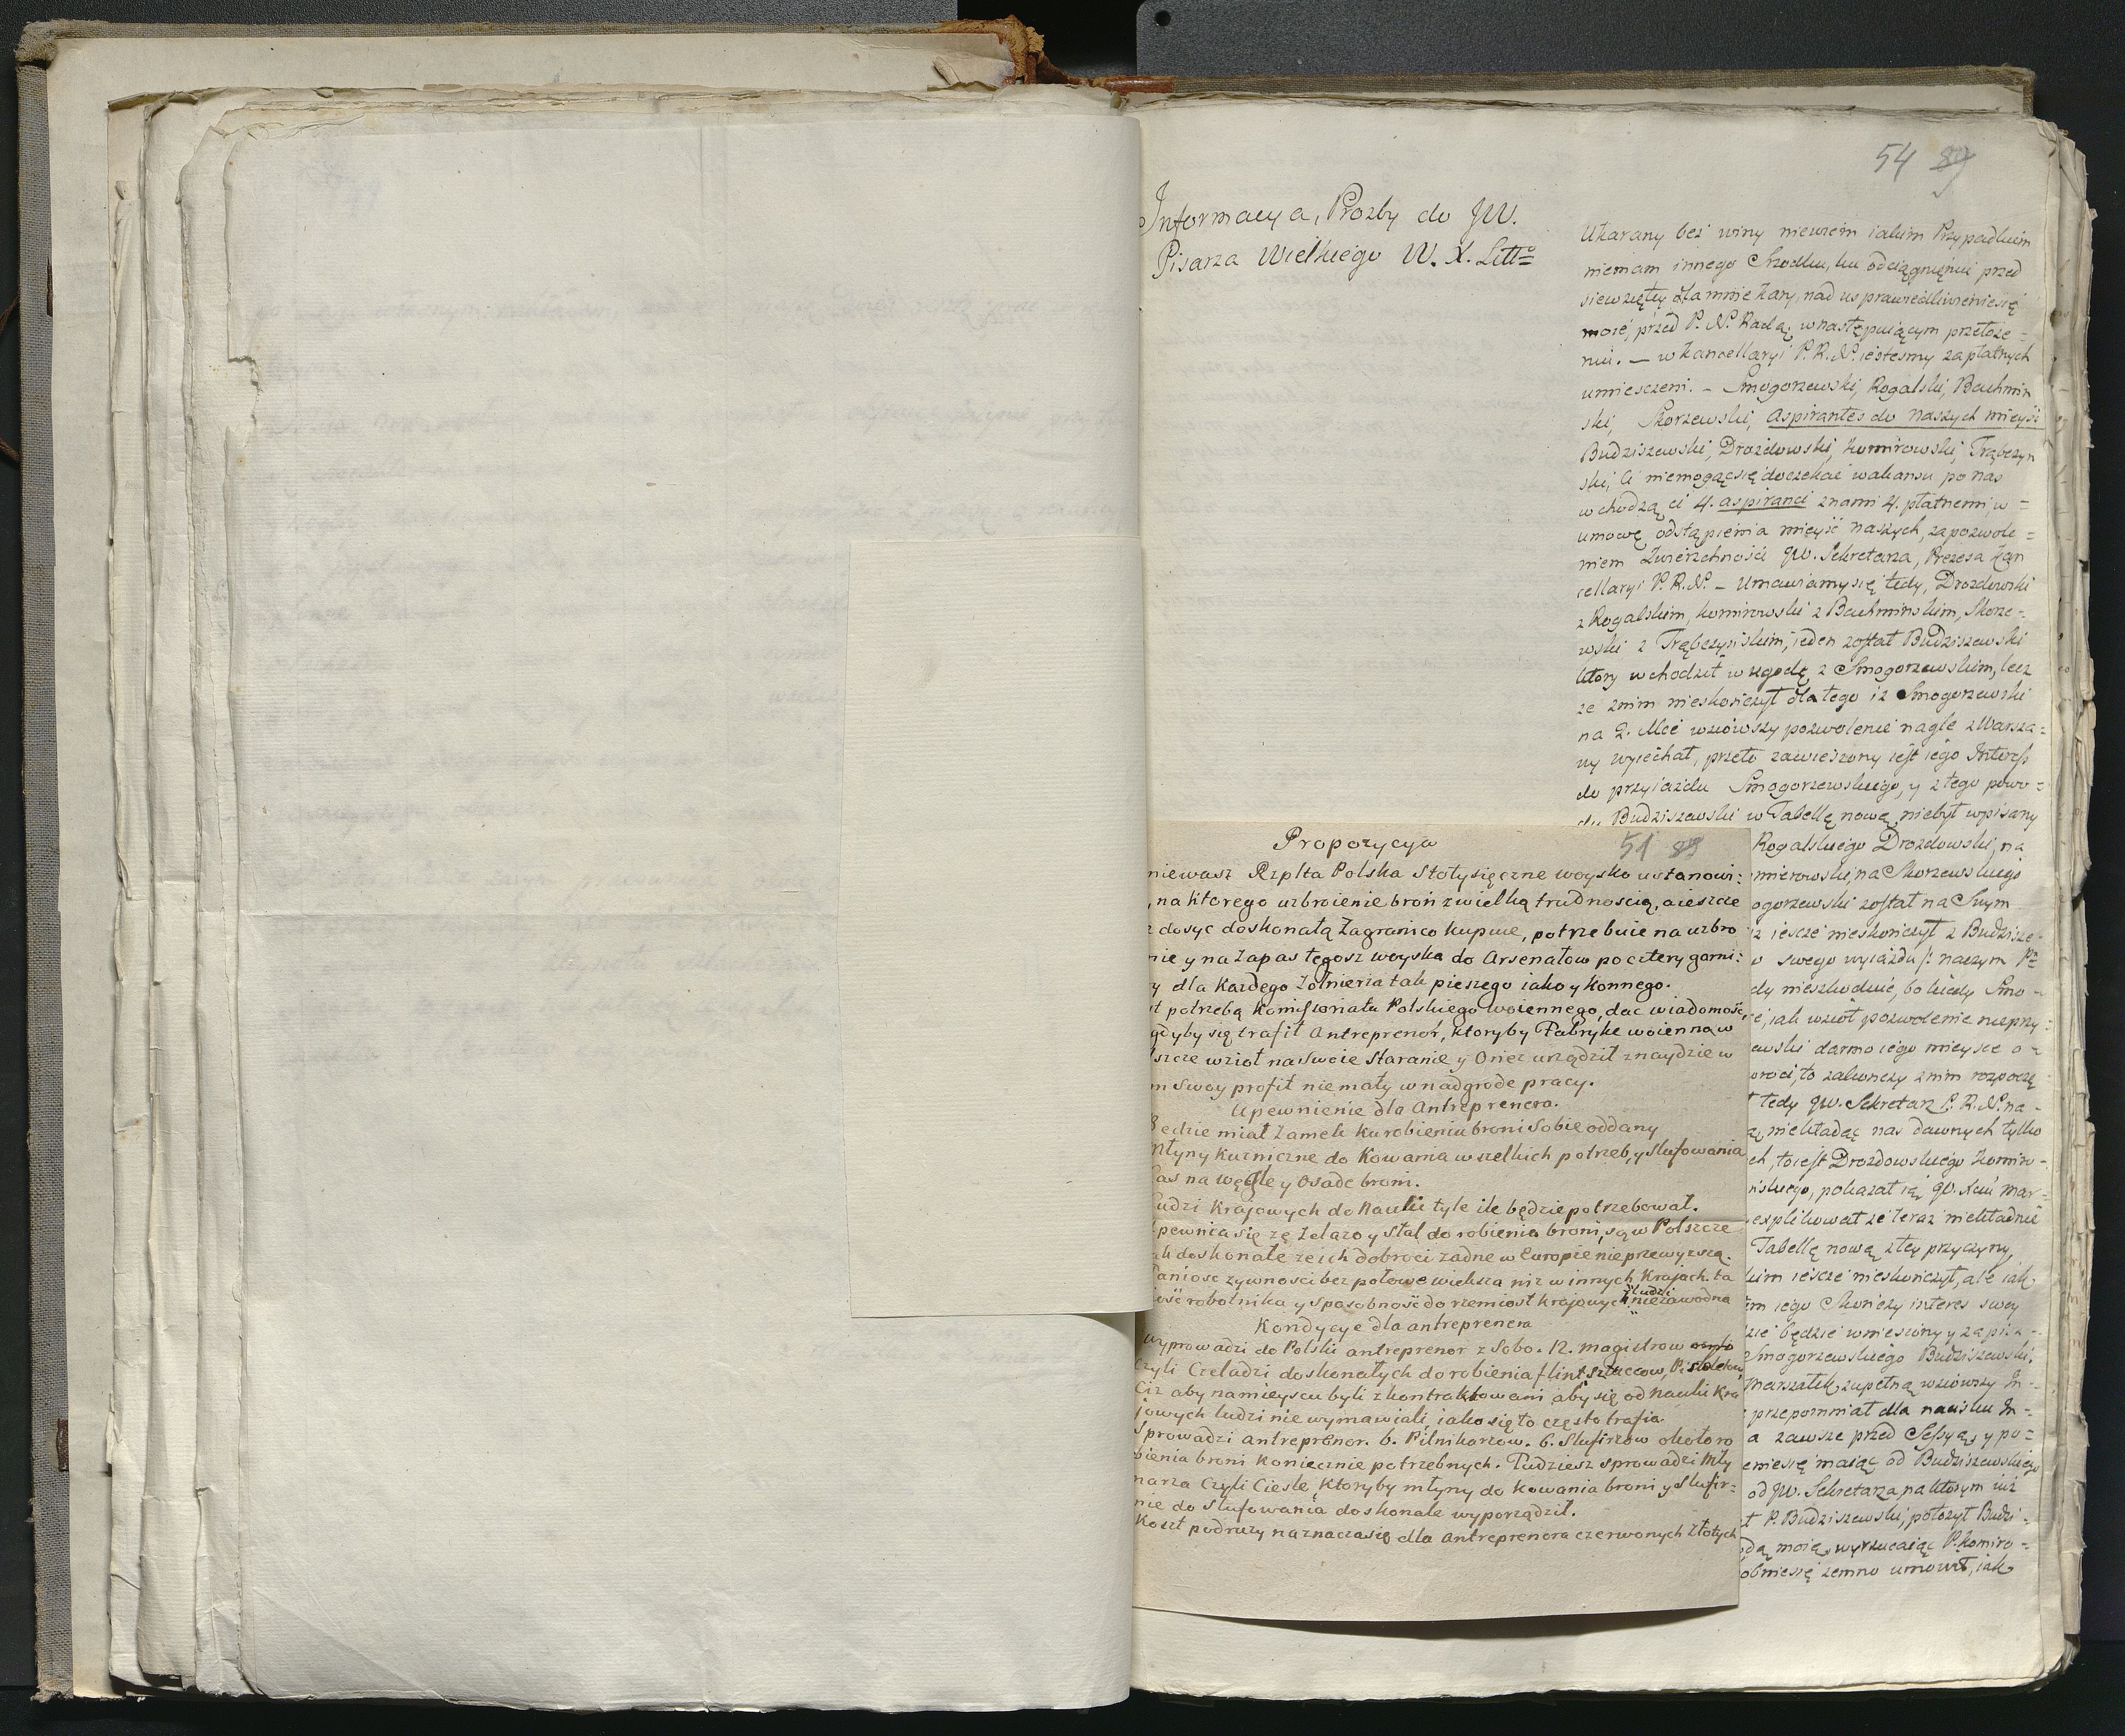 54 89
Informacya, Prozby do JW.
Pisarza Wielkiego W. X. Litt=
Ukarany bez winy niewiem iakim Przypadkiem
niemam innego Srzodku, ku odciągnieniu przed
siewziętey dla mnie kary, nad usprawiedliwieniesię
moie, przed P. N. Radą, wnastępuiącym przełoże=
niu. — w Kancellaryi P. R. N. iestesmy zapłatnych
umiesczeni. – Smogorzewski, Rogalski, Bachmin
ski, Skorzewski, Aspirantes do naszych mieysc
Budziszewski, Drozdowski, Komirowski, Trąbczyn
ski, Ci niemogącsię doczekać wakansu po nas
wchodzą ci 4. aspiranci znami 4. płatnemi w=
umowę odstąpienia mieysć naszych, zapozwole=
niem Zwierzchności JW. Sekretarza, Prezesa Kan
cellaryi P. R. N. – Umawiamysię tedy, Drozdowski
z Rogalskim, Komirowski z Bachminskim, Skorze=
wski z Trąbczynskim, ieden został Budziszewski
ktory wchodził w ugodę z Smogorzewskim, lecz
ze znim nieskończył dla tego iz Smogorzewski
na 2. Mce wziowszy pozwolenie nagle z Warsza=
wy wyiechał, przeto zawieszony iest iego Interess
do przyiazdu Smogorzewskiego, y z tego powo=
du Budziszewski w Tabellę nową niebył wpisany
Rogalskiego Drozdowski, na
mirowski, na Skorzewskiego
ogorzewski został na Swym
iz iescze nieskończył z Budzisze=
o swego wyiazdu /: naczym
dy nieszkodzić, bo kiedy Smo=
é, iak wziół pozwolenie nieprzy=
ewski darmo iego mieysce o=
wroci, to zakonczy znim rozpoczę
tedy JW. Sekretarz P. R. N. na=
ą niekładąc nas dawnych tylko
ch, toiest Drozdowskiego Komiro=
nskiego, pokazał ią JW. Mar=
explikował ze teraz niekładnie
Tabellę nową z tey przyczyny,
kim iescze nieskończył, ale iak
im iego Skończy interes swoy
zie będzie wniesiony y zapisa=
Smogorzewskiego Budziszewski,
Marszałek zupełną wziowszy In=
przepomniał dla nacisku In=
a zawsze przed Sessyą, y po=
emiesię maiąc od Budziszewskiego
od JW. Sekretarza na ktorym iuż
t P. Budziszewski, położył Budzi=
dą moią, wyrzucaiąc P. Komiro=
obniesię zemno umowił, iak
Propozycya
51 89
niewasz Rzplta Polska Stotysięczne woysko ustanowi:
, na ktorego uzbroienie broń z wielką trudnoscią, aieszcze
z dosyc doskonałą Zagranico kupuie, potrzebuie na uzbro
nie y na Zapas tegosz woyska do Arsenałow po cztery garni:
y dla Każdego Zołnierza tak pieszego iako y Konnego.
st potrzebą Komissoriatu Polskiego woiennego, dac wiadomość,
gdyby się trafił Antreprenor, ktoryby Fabryke woienną w
lszcze wzioł na Swoie Staranie y Oniez urządził znaydzie w
m Swoy profit nie mały w nadgrode pracy.
Upewnienie dla Antreprenera.
Będzie miał Zamek ku robieniu broni Sobie oddany
Młyny kuzniczne do Kowania wszelkich potrzeb, y Slufowania
as na węgle y Osade broni.
udzi Krajowych do Nauki tyle ile będzie potrzebował.
pewnia się zę Zelazo y Stal do robienia broni, są w Polszcze
ak doskonałe ze ich dobroci zadne w Europie nie przewyzszą.
aniosc zywnosci bez połowe wieksza niz w innych Krajach. ta
ość robotnika y sposobność do rzemiosł krajowych ludzi niezawodna
Kondycye dla antreprenera
wyprowadzi do Polski antreprenor z Sobo. 12. magistrow
Czyli Czeladzi doskonałych do robienia flint sztuccow, Pistoletow,
Ciz aby namieyscu byli zkontraktowani aby się od Nauki Kra
jowych ludzi nie wymawiali, iako się to często trafia
Sprowadzi antreprenor. 6. Pilnikorzow. 6. Slufirzow około ro
bienia broni Koniecznie potrzebnych. Tudziesz sprowadzi Mły
narza Czyli Ciesle, Ktoryby młyny do Kowania broni y Slufir=
nie do Slufowania doskonale wyporządził.
Koszt podruzy naznacza się dla Antreprenera czerwonych Złotych